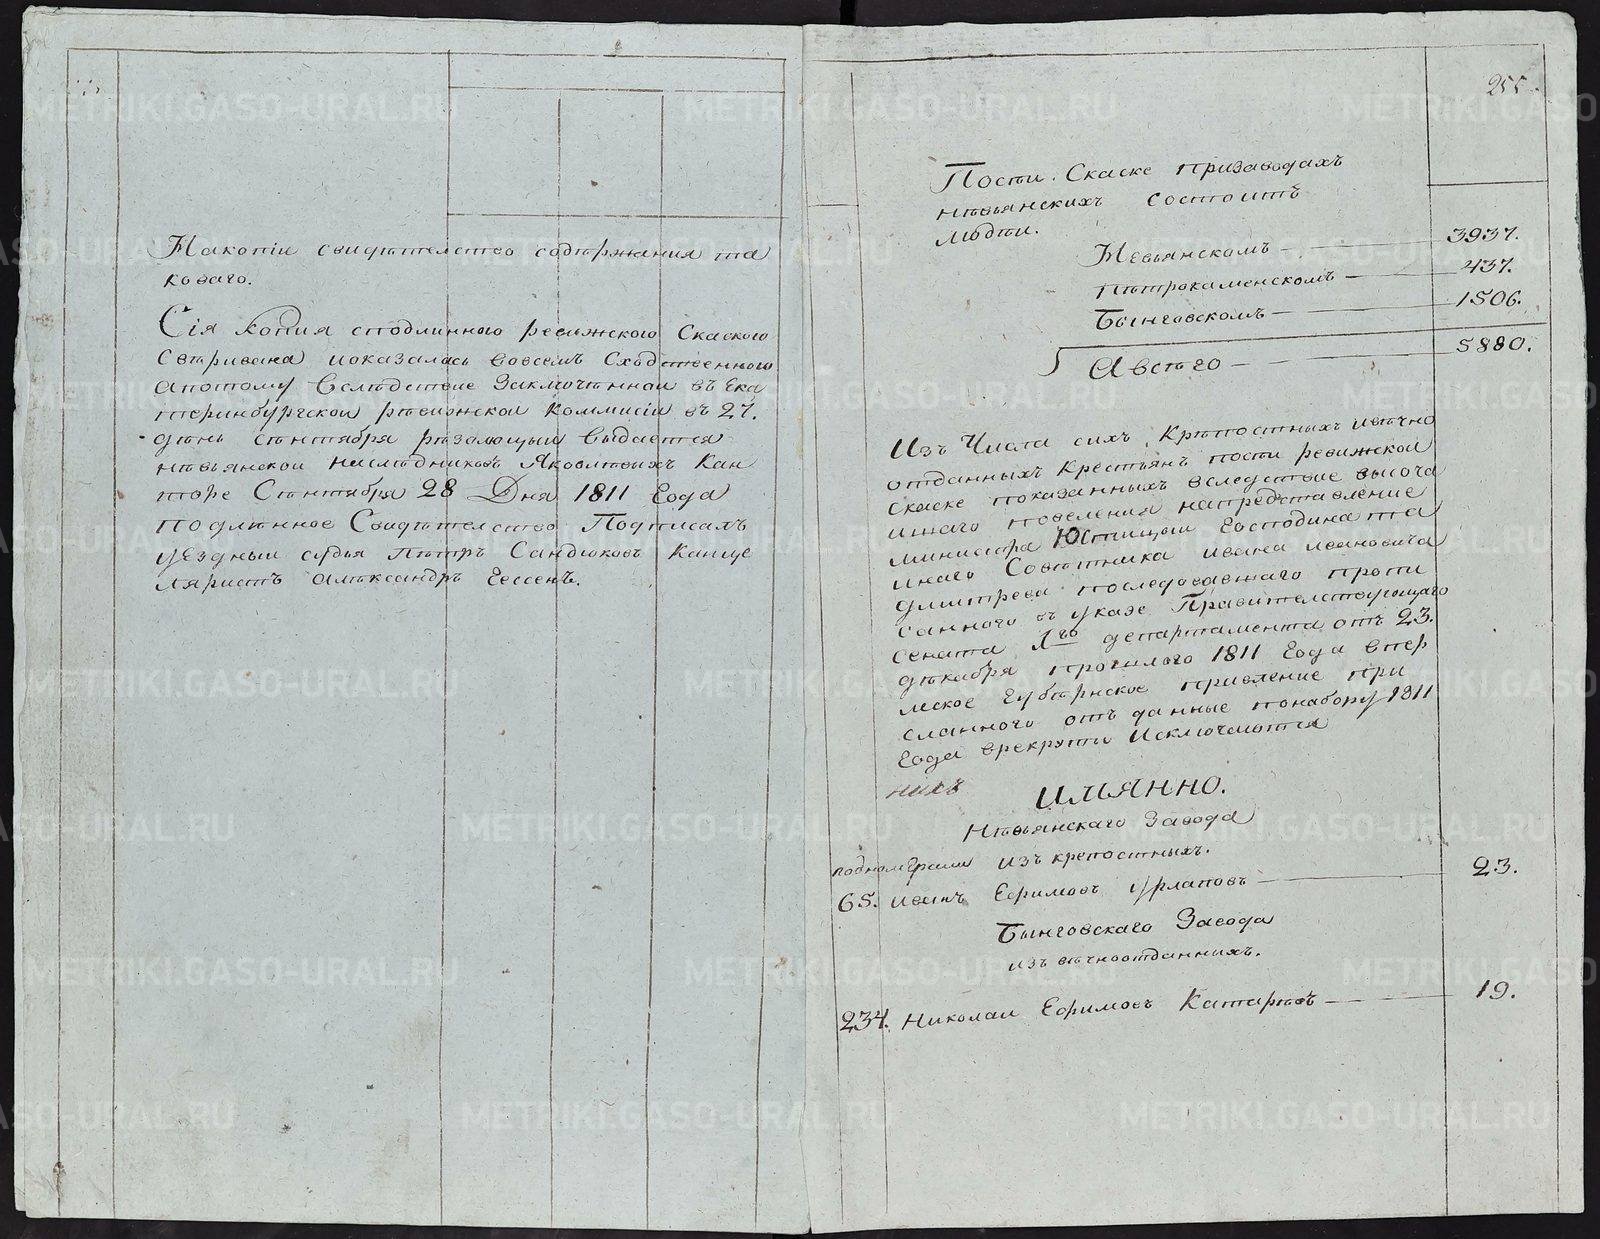 Накопiи свидѣтелство содѣржания та
коваго.
Сiя Копия сподлиннаго ревижскаго Скаского
Свѣривана иоказалась вовсемъ Сходственного
апотому Вслѣдствие Заключѣннои въ Ека
тѣринбургскои рѣвижскои Коммисiи въ 27.
дѣнь сѣнтября рѣзолюцыи выдается
нѣвьянскои наслѣдниковъ Яковлѣвихъ Кан
торе Сѣнтября 28 Дня 1811 Года
подлѣнное Свидѣтелство Подписалъ
уѣздныи судья пѣтръ Сандюковъ Канце
ляристъ алѣксандръ Гессенъ.
255.
Посѣи Скаске призаводахъ
нѣвьянскихъ состоитъ
людѣи.
Невьянскомъ — 3937.
Пѣтрокаменскомъ — 437.
Бынговскомъ — 1506.
Авсѣго — 5880.
Изъ Числа сихъ Крѣпостныхъ ивѣчно
отданныхъ Крестьянъ посеи ревижскои
скаске показанныхъ вследствие высоча
ишаго повеления напредставление
министра Юстицыи Господина та
инаго Совѣтника ивана ивановича
дмитрева последовавшаго пропи
санного въ указе Правителствующаго
сената 1го департамента отъ 23.
дѣкабря прошлаго 1811 Года впер
мское Губѣрнское правление при
сланного отъ данные понабору 1811
Года врекруты Исключаются
нихъ
имянно.
Нѣвьянскаго Завода
изъ крепостныхъ.
65. иванъ Ефимовъ Урлаповъ — 23.
Бынговскаго Завода
изъ вѣчноотданныхъ.
234. Николаи Ефимовъ Катарѣвъ — 19.
METRIKI.GASO-URAL.RU